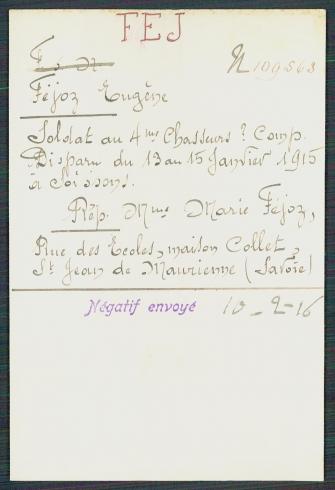 FEJ
N 109563
Féjoz Eugène
Soldat au 4me Chasseurs ? Comp.
Disparu du 13 au 15 Janvier 1915
à Soissons.
Rép. Mme Marie Féjoz,
Rue des Ecoles, maison Collet,
St Jean de Maurienne (Savoie)
Négatif envoyé 10-2-16